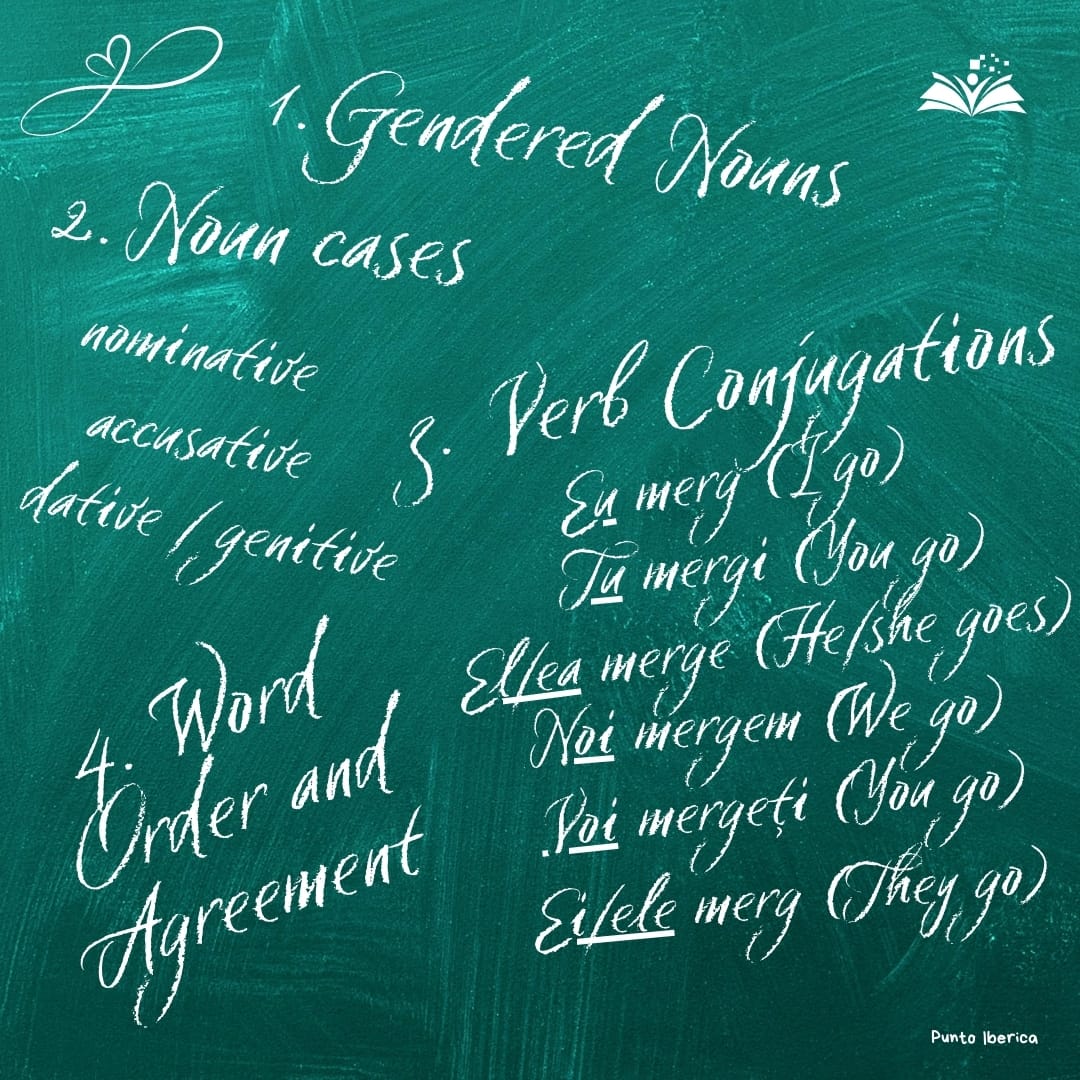 1. Gendered Nouns
2. Noun cases
nominative
accusative
dative / genitive
3. Verb Conjugations
Eu merg (I go)
Tu mergi (You go)
El/ea merge (He/she goes)
Noi mergem (We go)
Voi mergeți (You go)
Ei/ele merg (They go)
4. Word
Order and
Agreement
Punto Iberica